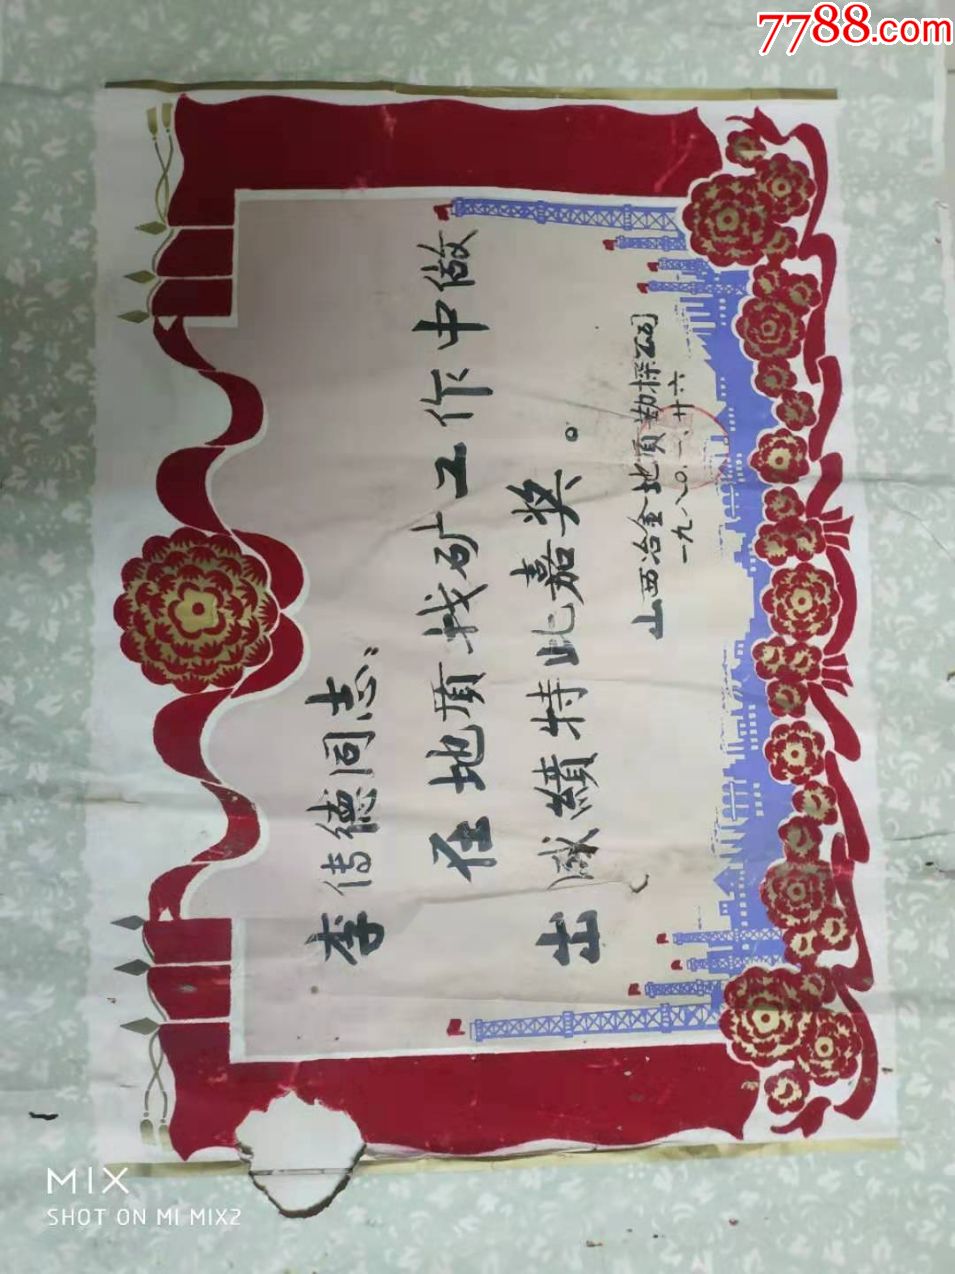 7788.com
李传德同志:
在地质找矿工作中做
出成績特此嘉奖。
山西冶金地质勘探公司
一九八〇.一.廿六
MIX
SHOT ON MI MIX2